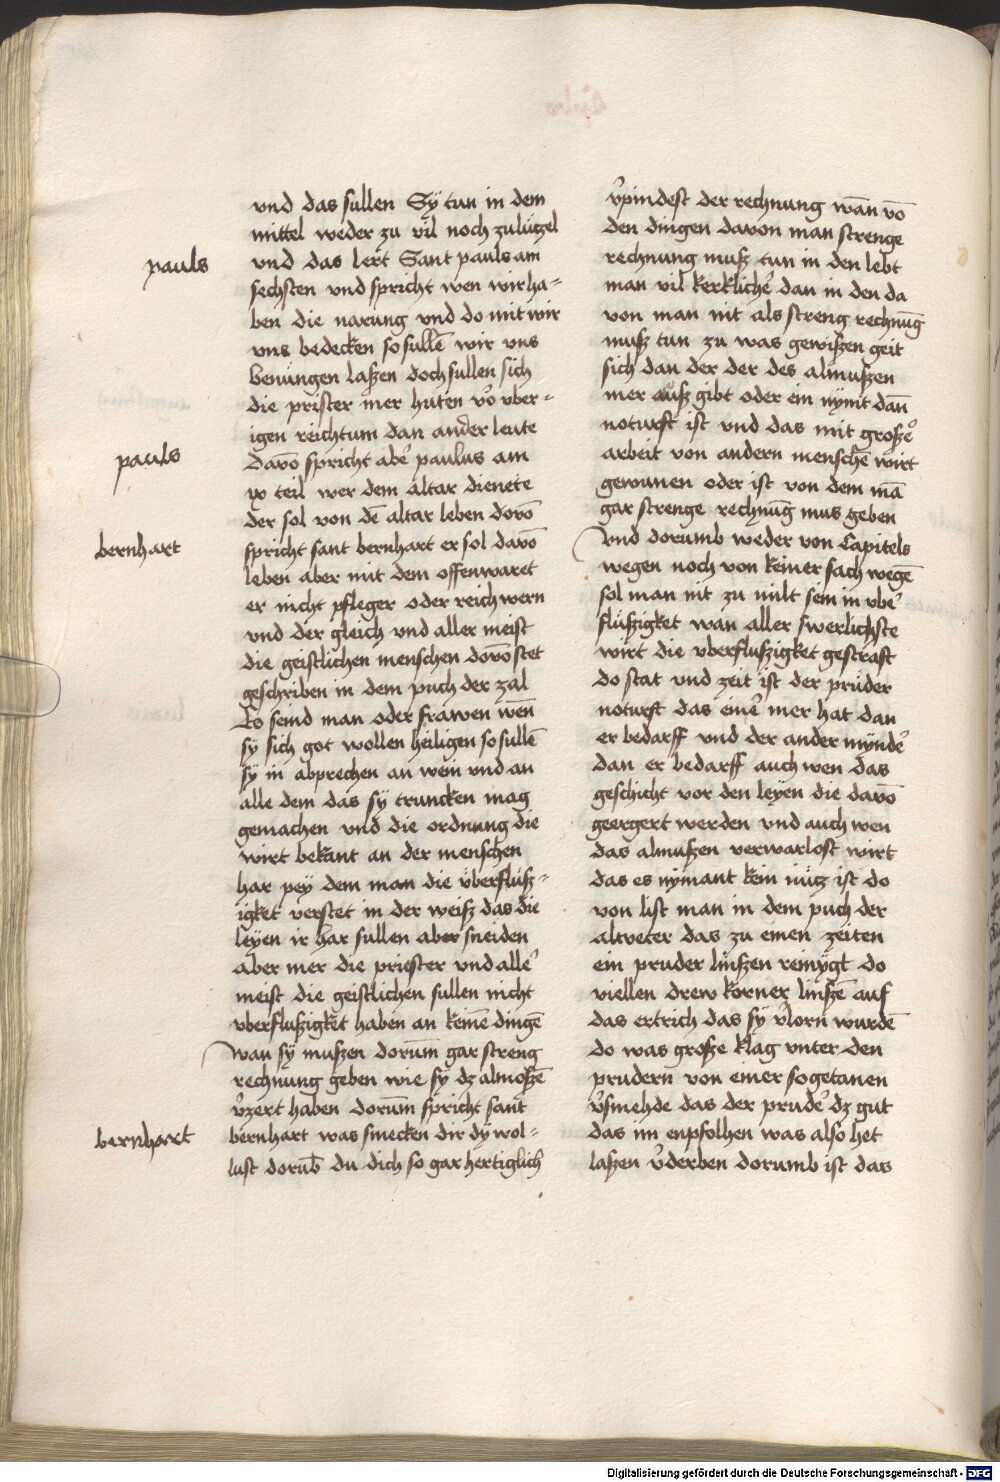 vnd das sullen Sÿ tun in dem
mittel weder zu vil noch zulüczel
pauls
vnd das lert Sant pauls am
sechsten vnd spricht wen wir ha=
ben die narung vnd do mit wir
vns bedecken so sullē wir vns
benüngen laßen doch sullen sich
die prister mer huten vō vber=
igen reichtum dan ander leute
pauls
davō spricht abẽ paulus am
teil wer dem altar dienete
der sol von dē altar leben dorō
bernhart
spricht sant bernhart er sol davō
leben aber mit dem offenwaret
er nicht pfleger oder reich wern
vnd der gleich vnd aller meist
die geistlichen menschen dovō stet
geschriben in dem püch der zal
Es seind man oder frawen wen̄
sÿ sich got wollen heiligen so sullē
sÿ in abprechen an wein vnd an
alle dem das sÿ truncken mag
gemachen vnd die ordnung die
wirt bekant an der menschen
har peÿ dem man die überflüß=
igket verstet in der weiß das die
leÿen ir har sullen aber sneiden
aber mer die priester vnd alle᷑
meist die geistlichen sullen nicht
vberflußigket haben an keinē dingē
wan sÿ mußen dorum̄ gar streng
rechnung geben wie sÿ dz almoßē
v᷑zert haben dorum̄ spricht sant
bernhart
bernhart was smecken dir dÿ wol=
lust dorūb du dich so gar hertiglich᷑
v᷑pindest der rechnung wan̄ vō
den dingen davon man strenge
rechnung muß tun in den lebt
man vil kerkliche᷑ dan in den da
von man nit als streng rechnūg
muß tun zu was gewißen geit
sich dan der der des almußen
mer auß gibt oder ein nÿmt dan̄
noturft ist vnd das mit große᷑
arbeit von andern menschē wirt
gewunen oder ist von dem mā
gar strenge rechnūg mus geben
Vnd dorumb weder von Capitels
wegen noch von keiner sach wegē
sol man nit zu milt sein in vbe᷑
flüßigket wan aller swerlichste
wirt die vberflußigket gestraft
do stat vnd zeit ist der prüder
noturft das eine᷑ mer hat dan
er bedarff vnd der ander mÿnde᷑
dan er bedarff auch wen das
geschicht vor den leÿen die davō
geergert werden vnd auch wen
das almußen verwarlost wirt
das es nÿmant kein nücz ist do
von list man in dem puch der
altveter das zu einen zeiten
ein pruder linßen reinÿgt do
viellen drew körner linßē auf
das ertrich das sÿ v᷑lorn wurdē
do was große klag vnter den
prudern von einer sogetanen
v᷑smehde das der prude᷑ dz gut
das im enpfolhen was also het
laßen v᷑derben dorumb ist das
Digitalisierung gefördert durch die Deutsche Forschungsgemeinschaft - DFG